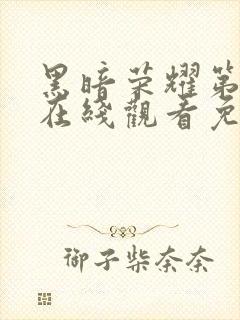 黑暗荣耀第
在綫觀看免
御子柴奈奈